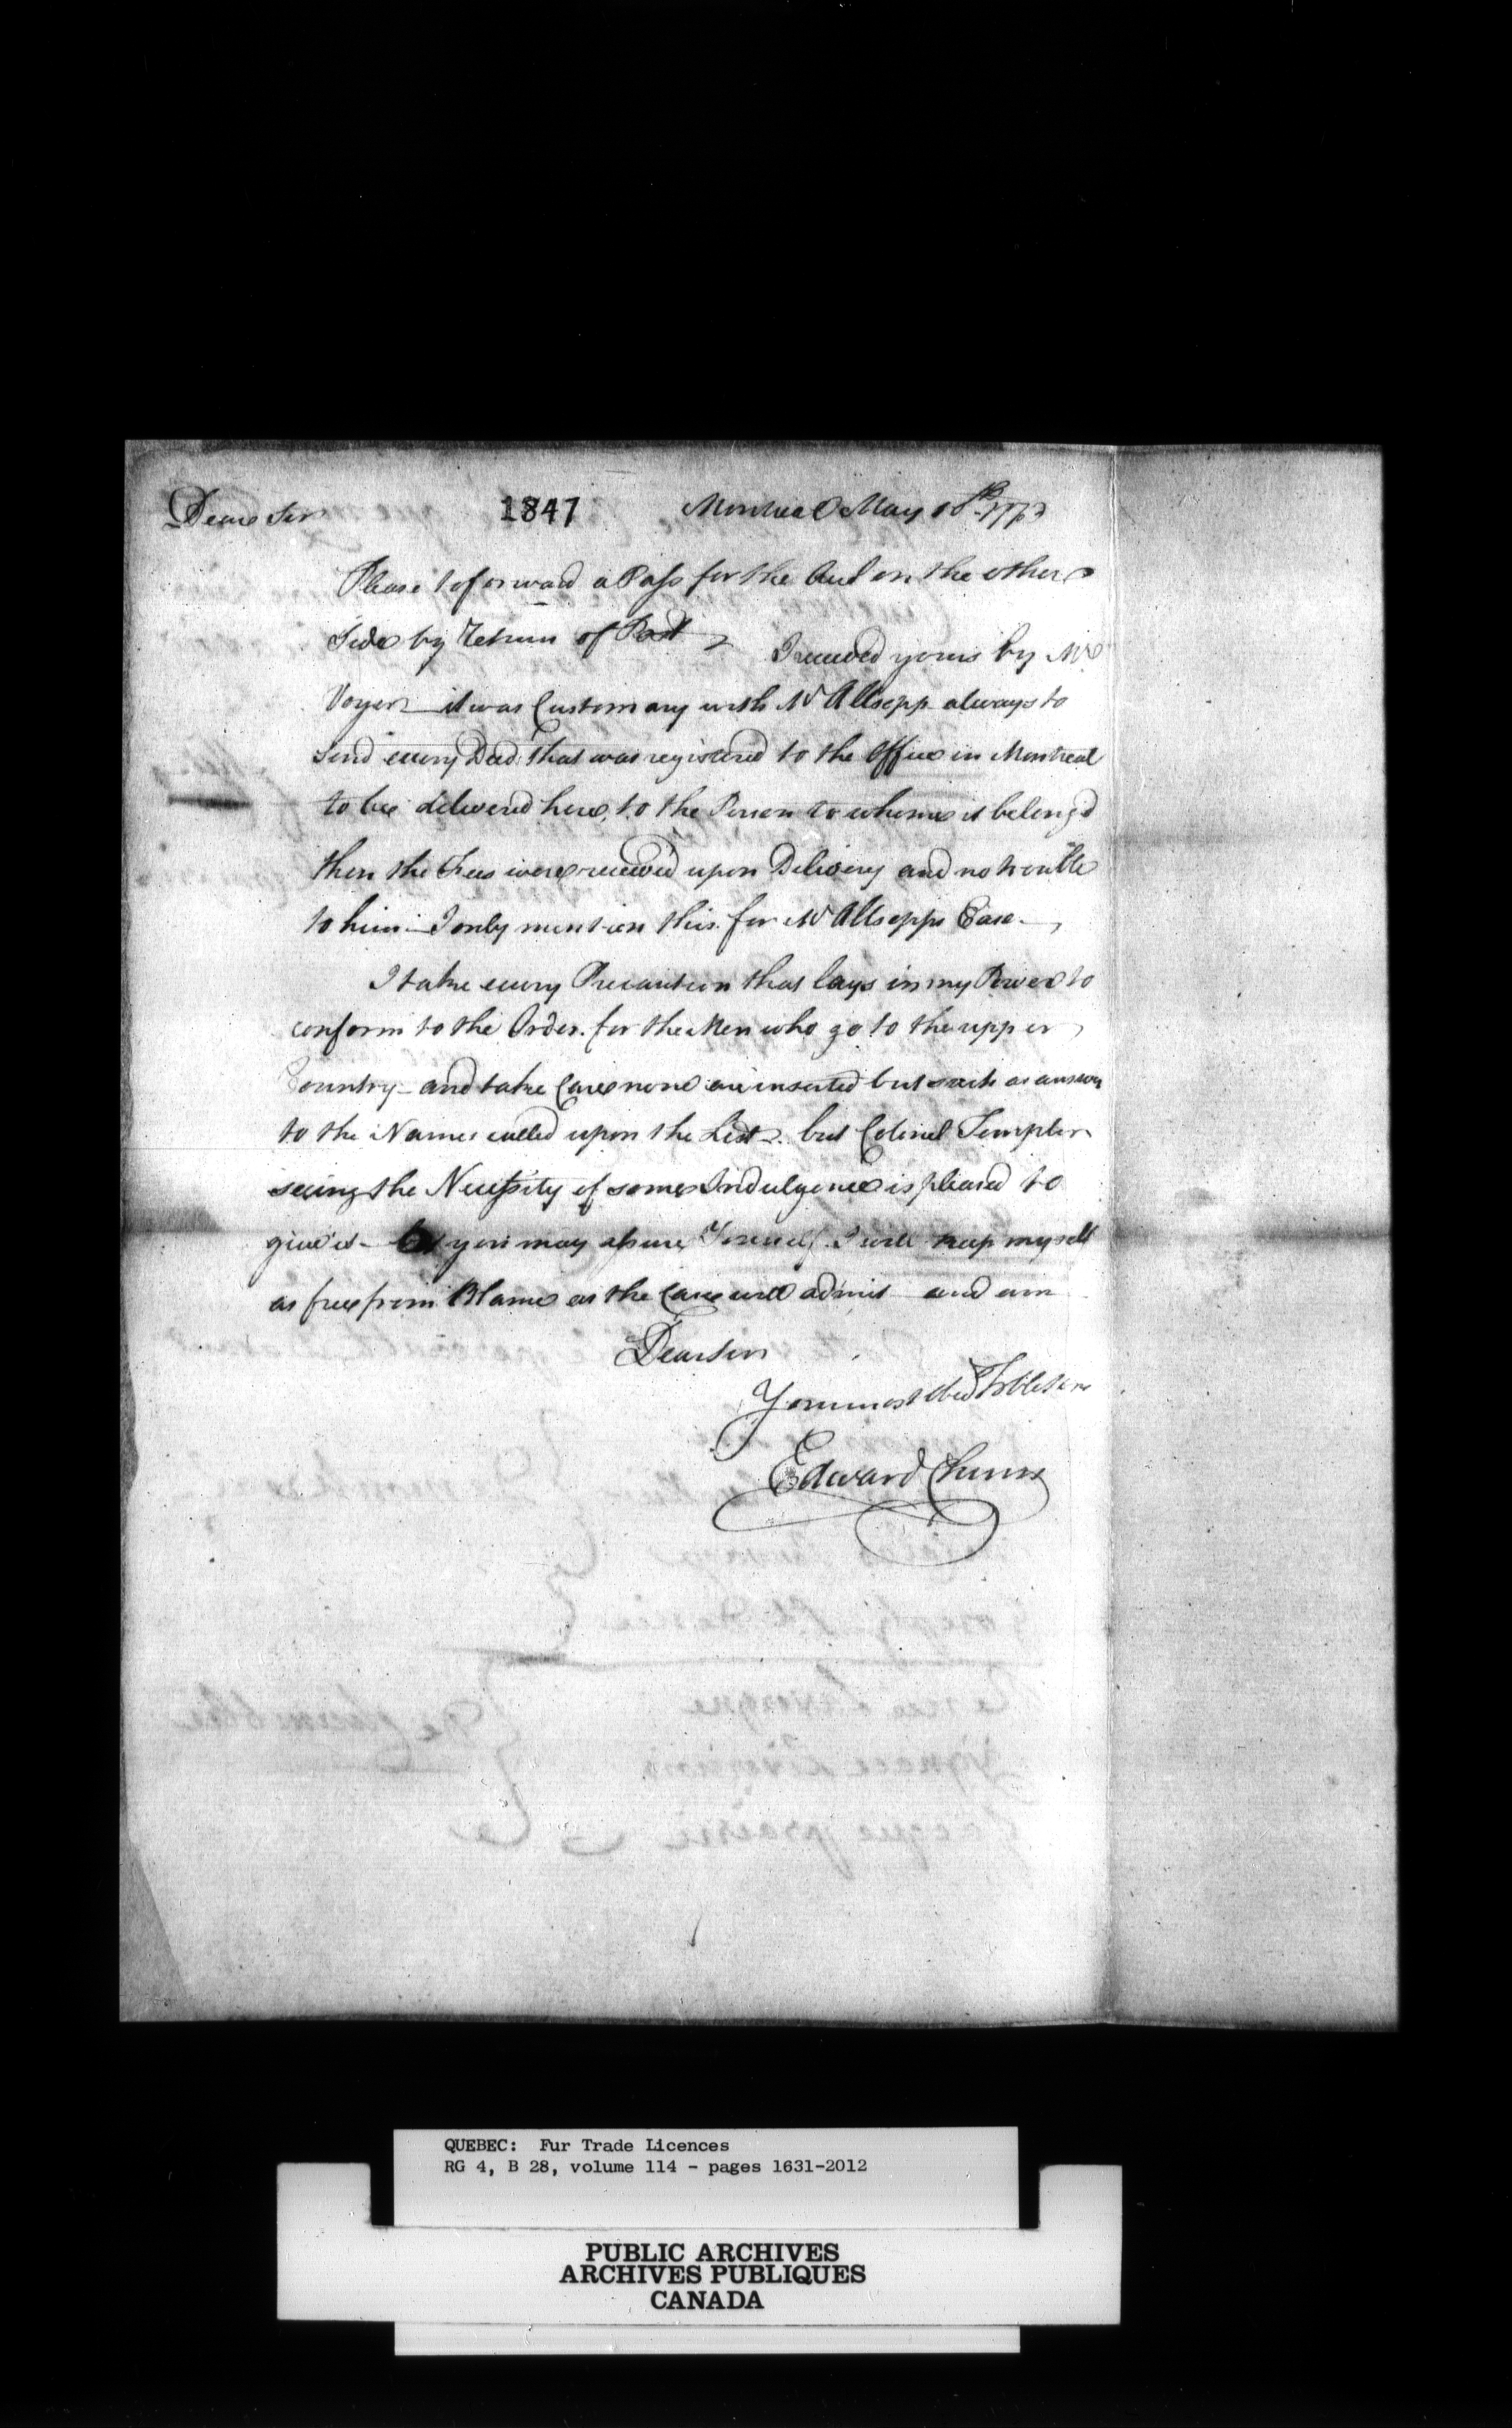 Dear Sir 1847 Montreal May 18th
Please to forward a Pass for the Aud on the other
Side by Return of Post I received yours by Mr
Voyer it was Customary with Mr Allsopp always to
send every Deed that was registered to the Office in Montreal
to be delivered here, to the Person to whome it belong'd
then the Fees were received upon Delivery and no trouble
to him I only mention this for Mr Allsopps Ease
I take every Precaution that lays in my Power to
conform to the Order for the Men who go to the upper
Country and take Care none are inserted but such as answer
to the Names called upon the List but Colonel Templer
seeing the Necessity of some Indulgence is pleased to
give it you may assure Yourself I will keep myself
as free from Blame as the Case will admit and am
Dear Sir
Your most Obed Hble Serv
Edward Chinn
QUEBEC: Fur Trade Licences
RG 4, B 28, volume 114 - pages 1631-2012
PUBLIC ARCHIVES
ARCHIVES PUBLIQUES
CANADA